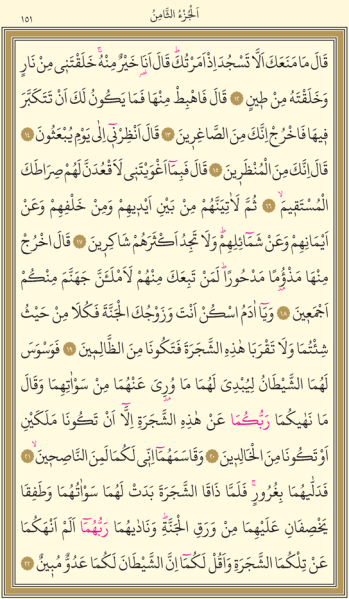 اَلْجُزْءُ الثَّامِنُ
١٥١
قَالَ مَا مَنَعَكَ اَلَّا تَسْجُدَ اِذْ اَمَرْتُكَۜ قَالَ اَنَا۬ خَيْرٌ مِنْهُۚ خَلَقْتَن۪ي مِنْ نَارٍ
وَخَلَقْتَهُ مِنْ ط۪ينٍ ١٢ قَالَ فَاهْبِطْ مِنْهَا فَمَا يَكُونُ لَكَ اَنْ تَتَكَبَّرَ
ف۪يهَا فَاخْرُجْ اِنَّكَ مِنَ الصَّاغِر۪ينَ ١٣ قَالَ اَنْظِرْن۪ٓي اِلٰى يَوْمِ يُبْعَثُونَ ١٤
قَالَ اِنَّكَ مِنَ الْمُنْظَر۪ينَ ١٥ قَالَ فَبِمَٓا اَغْوَيْتَن۪ي لَاَقْعُدَنَّ لَهُمْ صِرَاطَكَ
الْمُسْتَق۪يمَۙ ١٦ ثُمَّ لَاٰتِيَنَّهُمْ مِنْ بَيْنِ اَيْد۪يهِمْ وَمِنْ خَلْفِهِمْ وَعَنْ
اَيْمَانِهِمْ وَعَنْ شَمَٓائِلِهِمْۜ وَلَا تَجِدُ اَكْثَرَهُمْ شَاكِر۪ينَ ١٧ قَالَ اخْرُجْ
مِنْهَا مَذْؤُ۫مًا مَدْحُورًاۜ لَمَنْ تَبِعَكَ مِنْهُمْ لَاَمْلَـَٔنَّ جَهَنَّمَ مِنْكُمْ
اَجْمَع۪ينَ ١٨ وَيَٓا اٰدَمُ اسْكُنْ اَنْتَ وَزَوْجُكَ الْجَنَّةَ فَكُلَا مِنْ حَيْثُ
شِئْتُمَا وَلَا تَقْرَبَا هٰذِهِ الشَّجَرَةَ فَتَكُونَا مِنَ الظَّالِم۪ينَ ١٩ فَوَسْوَسَ
لَهُمَا الشَّيْطَانُ لِيُبْدِيَ لَهُمَا مَا وُ۫رِيَ عَنْهُمَا مِنْ سَوْاٰتِهِمَا وَقَالَ
مَا نَهٰيكُمَا رَبُّكُمَا عَنْ هٰذِهِ الشَّجَرَةِ اِلَّٓا اَنْ تَكُونَا مَلَكَيْنِ
اَوْ تَكُونَا مِنَ الْخَالِد۪ينَ ٢٠ وَقَاسَمَهُمَٓا اِنّ۪ي لَكُمَا لَمِنَ النَّاصِح۪ينَۙ ٢١
فَدَلّٰيهُمَا بِغُرُورٍۚ فَلَمَّا ذَاقَا الشَّجَرَةَ بَدَتْ لَهُمَا سَوْاٰتُهُمَا وَطَفِقَا
يَخْصِفَانِ عَلَيْهِمَا مِنْ وَرَقِ الْجَنَّةِۜ وَنَادٰيهُمَا رَبُّهُمَٓا اَلَمْ اَنْهَكُمَا
عَنْ تِلْكُمَا الشَّجَرَةِ وَاَقُلْ لَكُمَٓا اِنَّ الشَّيْطَانَ لَكُمَا عَدُوٌّ مُب۪ينٌ ٢٢